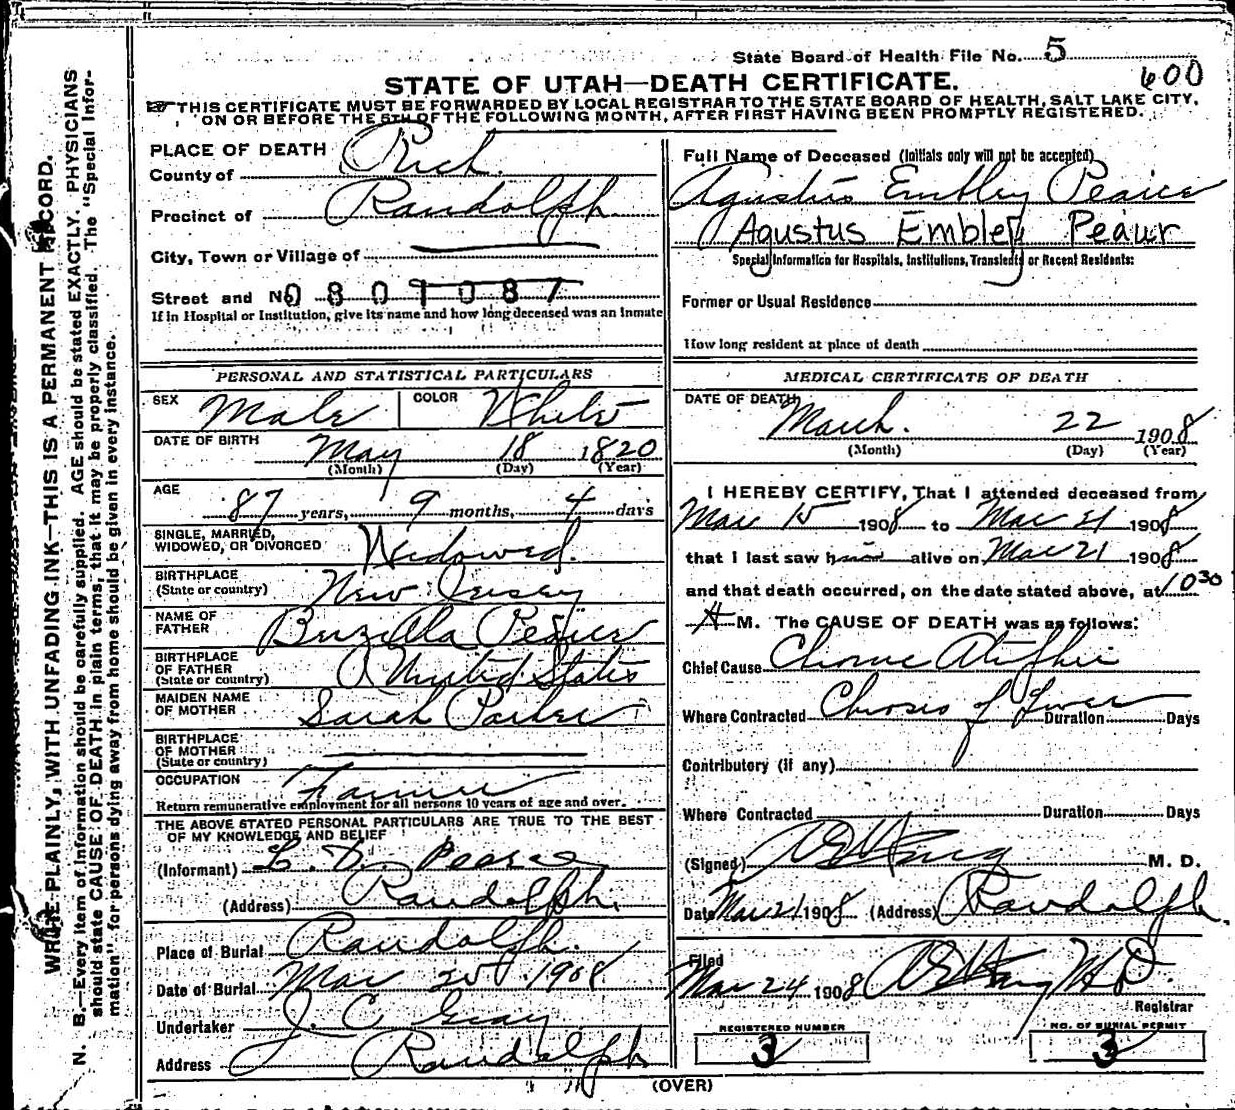 State Board of Health File No. 5
600
STATE OF UTAH—DEATH CERTIFICATE.
THIS CERTIFICATE MUST BE FORWARDED BY LOCAL REGISTRAR TO THE STATE BOARD OF HEALTH, SALT LAKE CITY,
ON OR BEFORE THE 5TH OF THE FOLLOWING MONTH, AFTER FIRST HAVING BEEN PROMPTLY REGISTERED.
WRITE PLAINLY, WITH UNFADING INK—THIS IS A PERMANENT RECORD.
N. B.—Every item of information should be carefully supplied. AGE should be stated EXACTLY. PHYSICIANS
should state CAUSE OF DEATH in plain terms, that it may be properly classified. The "Special Infor-
mation" for persons dying away from home should be given in every instance.
PLACE OF DEATH
County of Rich
Precinct of Randolph
City, Town or Village of
Street and No 0801087
If in Hospital or Institution, give its name and how long deceased was an Inmate
Full Name of Deceased (Initials only will not be accepted)
Agustus Embley Pearce
Agustus Embley Peaur
Special Information for Hospitals, Institutions, Transients or Recent Residents:
Former or Usual Residence
How long resident at place of death
PERSONAL AND STATISTICAL PARTICULARS
SEX Male COLOR White
DATE OF BIRTH May 18 1820
(Month) (Day) (Year)
AGE 87 years, 9 months, 4 days
SINGLE, MARRIED,
WIDOWED, OR DIVORCED Widowed.
BIRTHPLACE
(State or country) New Jersey
NAME OF
FATHER
BIRTHPLACE
OF FATHER
(State or country) United States
MAIDEN NAME
OF MOTHER Sarah Parker
BIRTHPLACE
OF MOTHER
(State or country)
OCCUPATION Farmer
Return remunerative employment for all persons 10 years of age and over.
THE ABOVE STATED PERSONAL PARTICULARS ARE TRUE TO THE BEST
OF MY KNOWLEDGE AND BELIEF
(Informant) Pearce
(Address) Randolph.
Place of Burial Randolph.
Date of Burial Mar 1908
Undertaker J. C. Gray
Address Randolph
MEDICAL CERTIFICATE OF DEATH
DATE OF DEATH March. 22 1908
(Month) (Day) (Year)
I HEREBY CERTIFY, That I attended deceased from
Mar 15 1908 to Mar 21 1908
that I last saw h alive on Mar 21 1908
and that death occurred, on the date stated above, at 1030
A M. The CAUSE OF DEATH was as follows:
Chief Cause
Where Contracted Duration Days
Contributory (if any)
Where Contracted Duration Days
(Signed) M. D.
Date Mar 21 1908 (Address) Randolph.
Filed
Mar 24 1908
Registrar
REGISTERED NUMBER
3
NO. OF BURIAL PERMIT
3
(OVER)